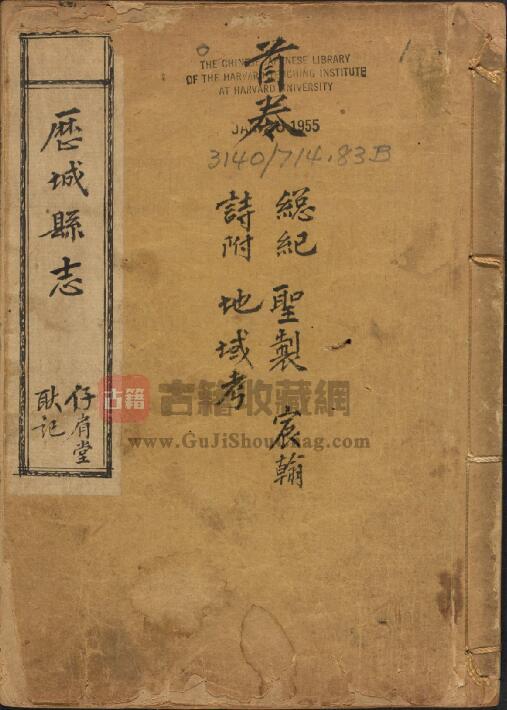 首卷
THE CHINESE-JAPANESE LIBRARY
OF THE HARVARD-YENCHING INSTITUTE
AT HARVARD UNIVERSITY
1955
3140/714.83B
總紀 聖製 宸翰
詩附 地域考
歷城縣志
仔肩堂
耿記
古籍
古籍收藏網
www.GuJiShouCang.com